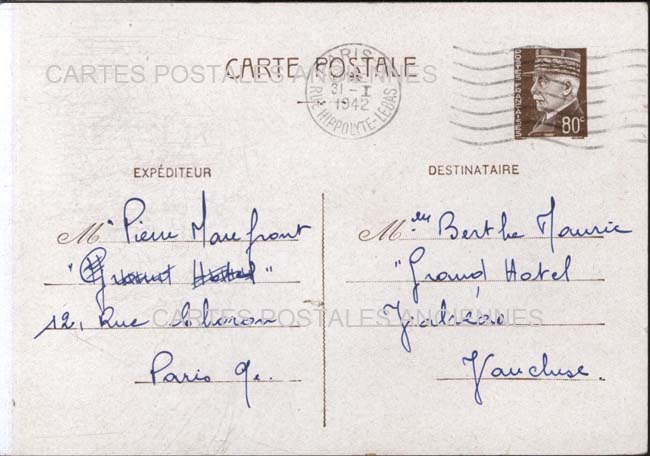 CARTE POSTALE
CARTES POSTALES ANCIENNES
PARIS
31 - I
1942
RUE HIPPOLYTE-LEBAS
POSTES FRANÇAISES
80c
EXPÉDITEUR
Mr Pierre
"Grand Hotel"
12, Rue
Paris 9e.
DESTINATAIRE
Melle Berthe Mauric
"Grand Hotel
Valréas
Vaucluse.
CARTES POSTALES ANCIENNES